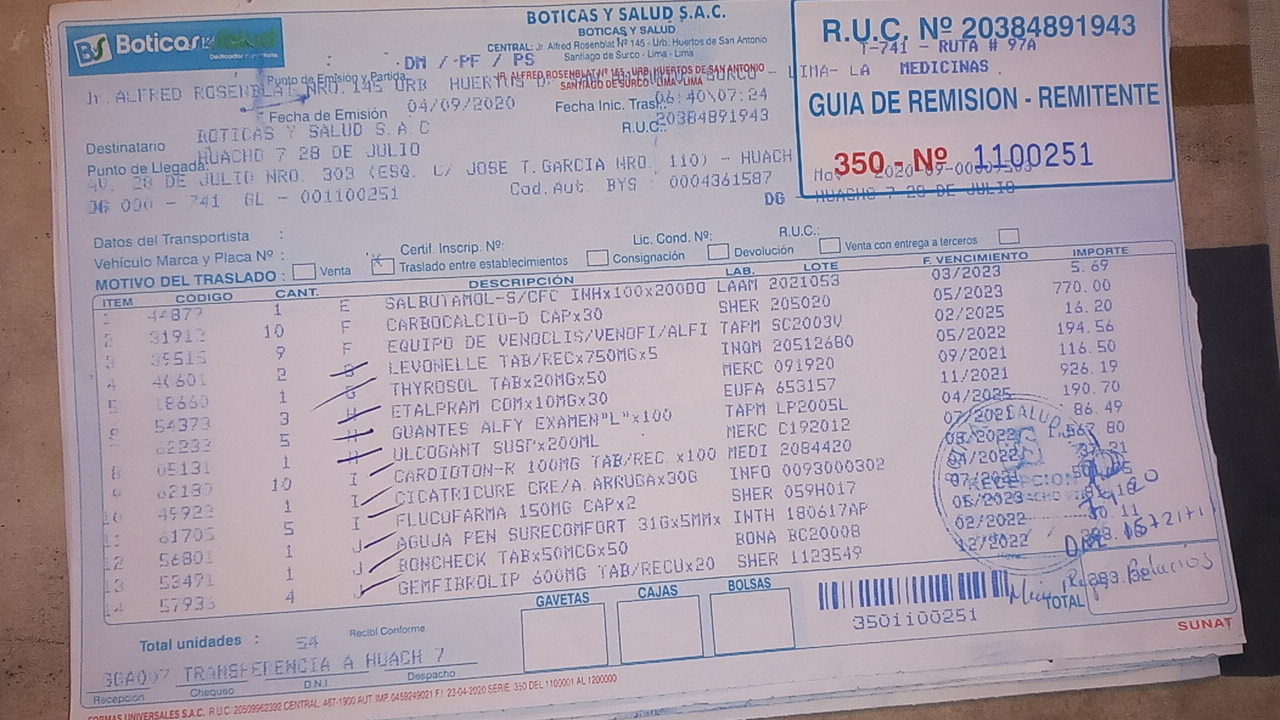 BS Boticas y Salud
BOTICAS Y SALUD S.A.C.
BOTICAS Y SALUD
CENTRAL: Jr. Alfred Rosenblat Nº 145 - Urb. Huertos de San Antonio
Santiago de Surco - Lima - Lima
DM / PF / PS
JR. ALFRED ROSENBLAT Nº 165, URB. HUERTOS DE SAN ANTONIO
SANTIAGO DE SURCO - LIMA - LIMA
R.U.C. Nº 20384891943
T-741 - RUTA # 97A
MEDICINAS
GUIA DE REMISION - REMITENTE
350 - Nº 1100251
HUACHO 7 28 DE JULIO
Punto de Emisión y Partida
Jr. ALFRED ROSENBLAT NRO. 145 URB HUERTOS SURCO - LIMA- LA
Fecha de Emisión 04/09/2020 Fecha Inic. Trasl. 06:40\07:24
R.U.C.: 20384891943
Destinatario BOTICAS Y SALUD S.A.C
Punto de Llegada: HUACHO 7 28 DE JULIO
AV. 28 DE JULIO NRO. 303 (ESQ. C/ JOSE T.GARCIA NRO. 110) - HUACH
DG 000 - 741 GL - 001100251 Cod.Aut. BYS : 0004361587 DG -
Datos del Transportista :
Vehículo Marca y Placa Nº : Certif. Inscrip. Nº: Lic. Cond. Nº: R.U.C.:
MOTIVO DEL TRASLADO : Venta X Traslado entre establecimientos Consignación Devolución Venta con entrega a terceros
ITEM CÓDIGO CANT. DESCRIPCIÓN LAB. LOTE F. VENCIMIENTO IMPORTE
1 44877 1 E SALBUTAMOL-S/CFC INHx100x200DO LAAM 2021053 03/2023 5.69
2 31912 10 F CARBOCALCIO-D CAPx30 SHER 205020 05/2023 770.00
3 39515 9 F EQUIPO DE VENOCLIS/VENOFI/ALFI TAPM SC2003V 02/2025 16.20
4 40601 2 LEVONELLE TAB/RECx750MGx5 INQM 20512680 05/2022 194.56
5 18660 1 G THYROSOL TABx20MGx50 MERC 091920 09/2021 116.50
54373 3 H ETALPRAM COMx10MGx30 EUFA 653157 11/2021 926.19
62233 5 H GUANTES ALFY EXAMEN"L"x100 TAPM LP2005L 04/2025 190.70
8 05131 1 ULCOGANT SUSPx200ML MERC C192012 86.49
62180 10 I CARDIOTON-R 100MG TAB/REC x100 MEDI 2084420
10 49922 1 I CICATRICURE CRE/A.ARRUGAx30G INFO 0093000302
11 61705 5 I FLUCOFARMA 150MG CAPx2 SHER 059H017
12 56801 1 J AGUJA PEN SURECOMFORT 31Gx5MMx INTH 180617AP
13 53491 1 J BONCHECK TABx50MCGx50 BONA BC20008 02/2022
14 57933 4 GEMFIBROLIP 600MG TAB/RECUx20 SHER 1123549 12/2022
RECEPCION
GAVETAS CAJAS BOLSAS
3501100251
TOTAL
Total unidades : 54 Recibí Conforme
GGA007 TRANSFERENCIA A HUACH 7
Recepción Chequeo D.N.I. Despacho
SUNAT
FORMAS UNIVERSALES S.A.C. R.U.C. 20509962392 CENTRAL: 467-1900 AUT. IMP. 0459249021 F.I. 23-04-2020 SERIE: 350 DEL 1100001 AL 1200000